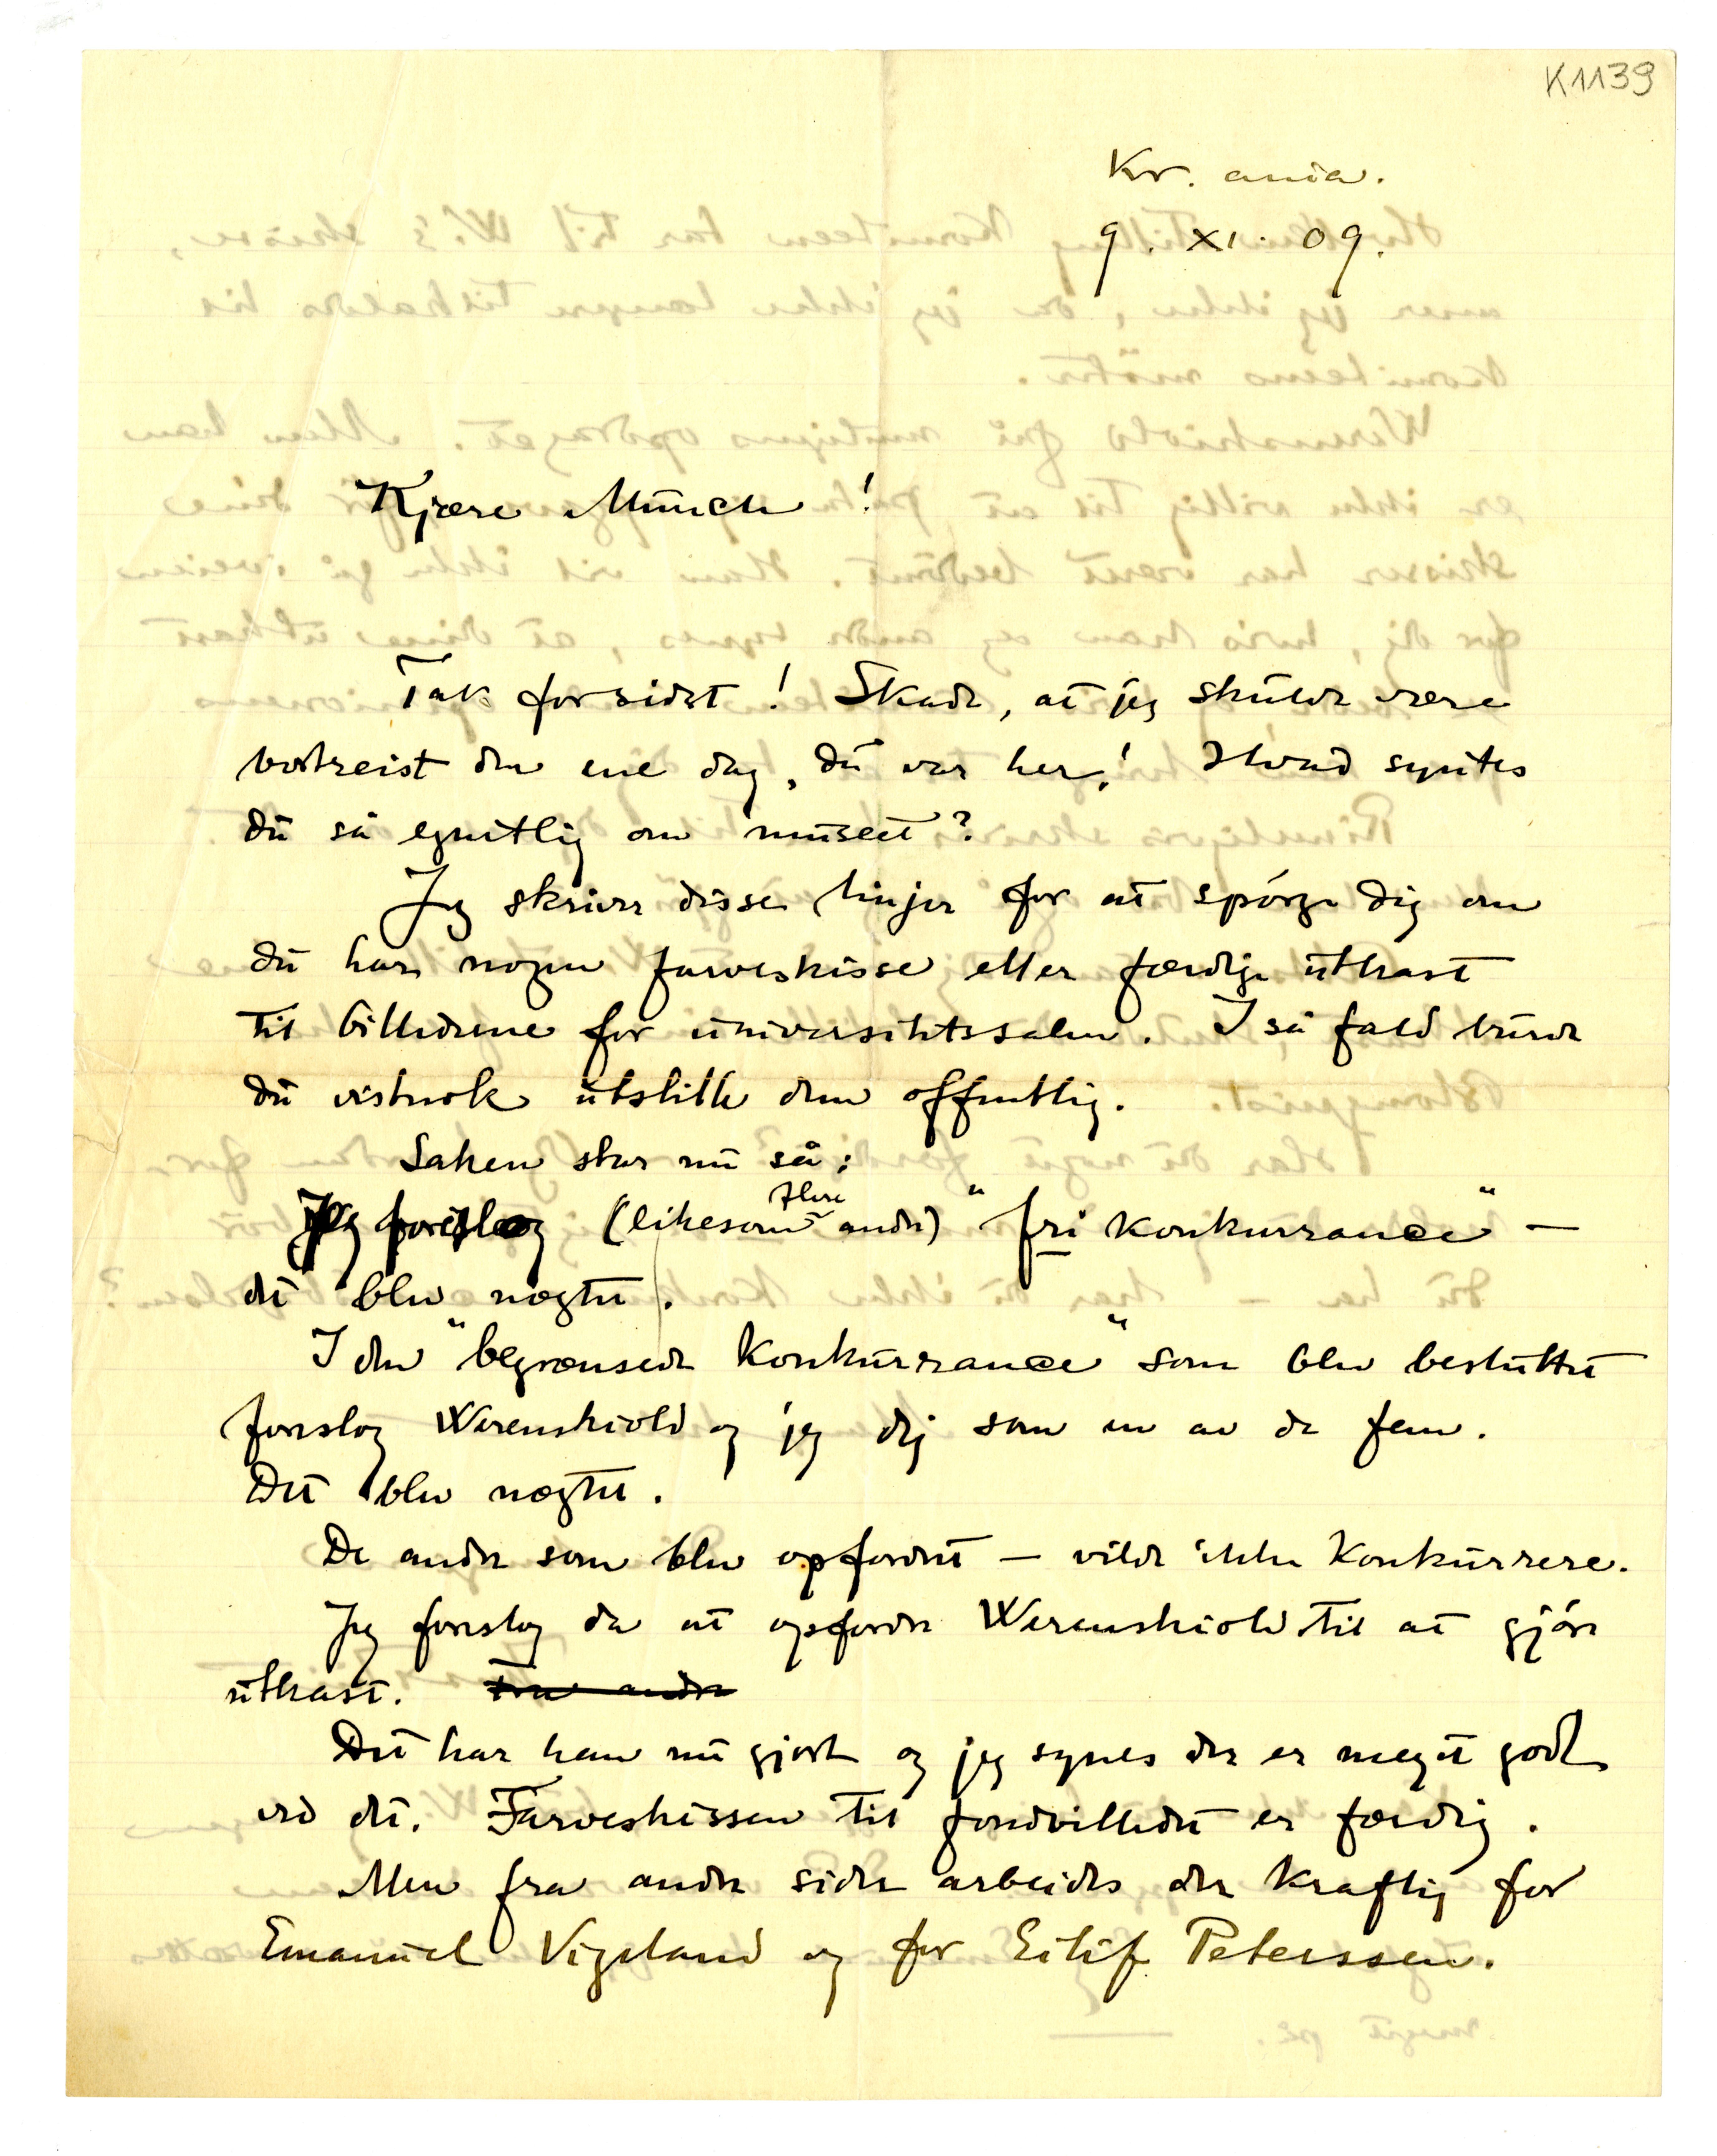 K1139
Kr. ania.
9. XI. 09.
Kjære Munch!
Tak for sidst! Skade, at jeg skulde være
bortreist den ene dag, du var her! Hvad syntes
du så egentlig om museet?
Jeg skriver disse linjer for at spørge dig om
du har nogen farveskisse eller færdige utkast
til billederne for universitetssalen. I så fald burde
du vistnok utstille dem offentlig.
Saken står nu så:
Jeg foreslog (likesom flere andre) "fri konkurrance" —
det blev nægtet.
I den "begrænsede konkurrance" som blev besluttet
foreslog Werenskiold og jeg dig som en av de fem.
Det blev nægtet.
De andre som blev opfordret — vilde ikke konkurrere.
Jeg foreslog da at opfordre Werenskiold til at gjøre
utkast.
Det har han nu gjort og jeg synes der er meget godt
ved det. Farveskissen til fondbilledet er færdig.
Men fra andre sider arbeides der kraftig for
Emanuel Vigeland og for Eilif Peterssen.